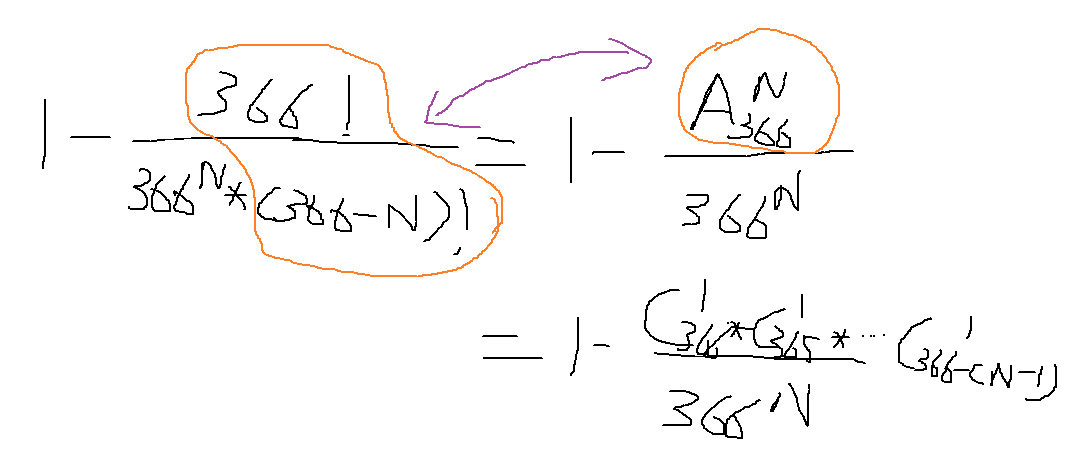 1 - 366! / (366^N * (366-N)!) = 1 - A_366^N / 366^N
= 1 - C_366^1 * C_365^1 * ... C_366-(N-1)^1 / 366^N